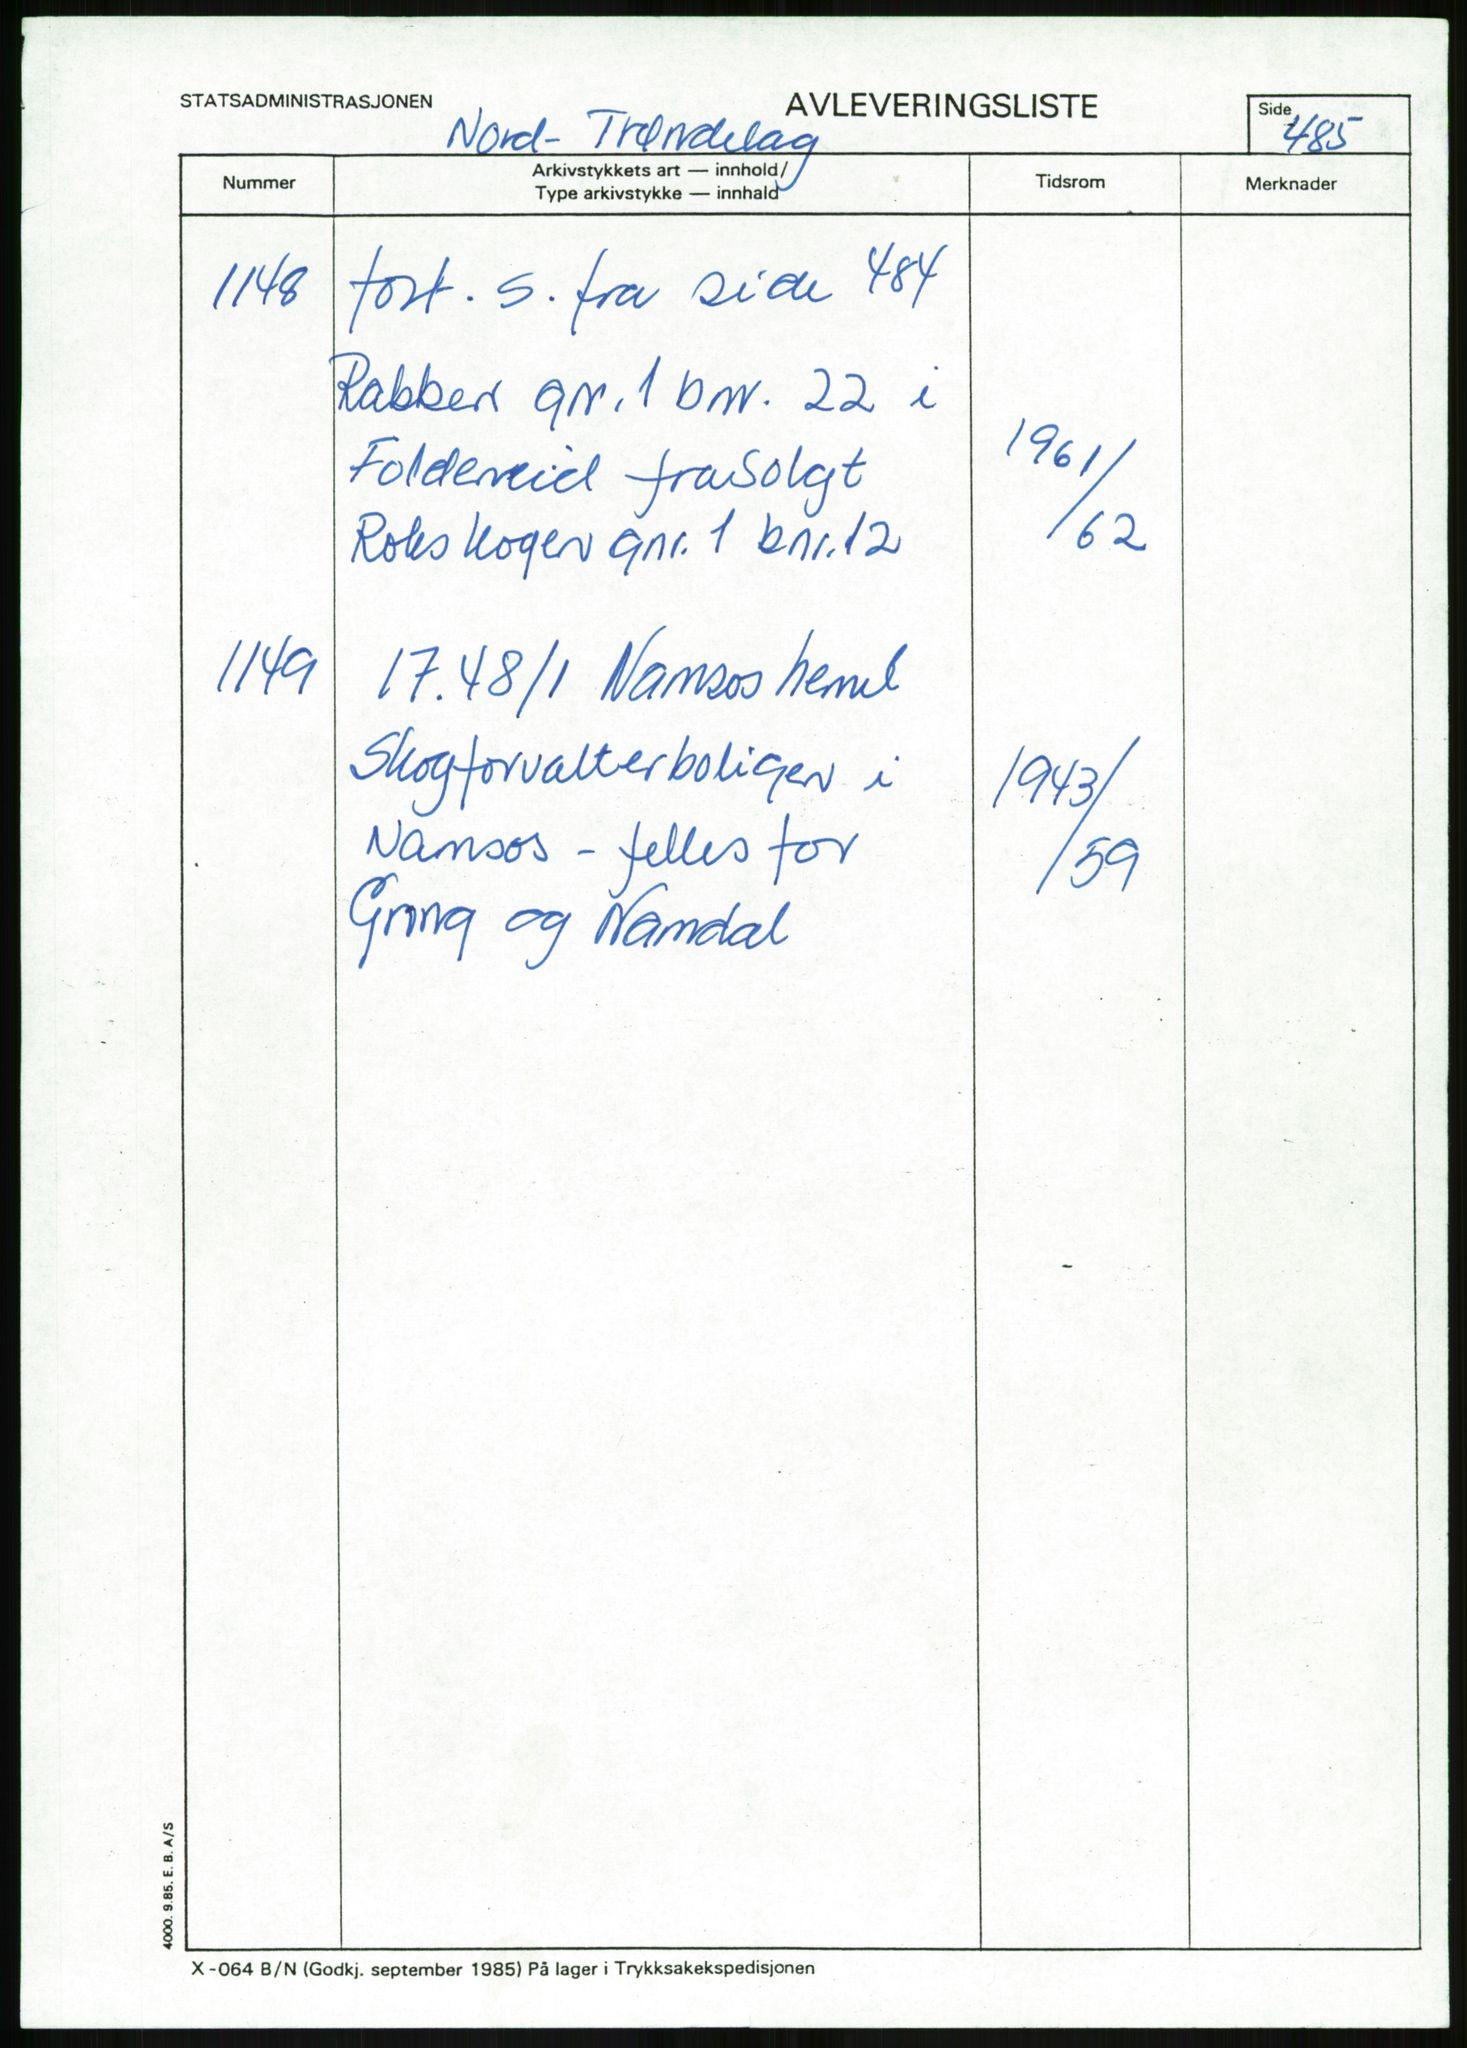 STATSADMINISTRASJONEN
AVLEVERINGSLISTE
Side
485
Nord-Trøndelag
Nummer
Arkivstykkets art — innhold/
Type arkivstykke — innhald
Tidsrom
Merknader
1148 fort. s. fra side 484
Rabben gnr. 1 bnr. 22 i
Foldereid frasolgt 1961/
Rokskogen gnr. 1 bnr. 12 /62
1149 17.48/1 Namsos heml
Skogforvalterboligen i 1943/
Namsos - felles for /59
Grong og Namdal
4000. 9.85. E. B. A/S
X-064 B/N (Godkj. september 1985) På lager i Trykksakekspedisjonen